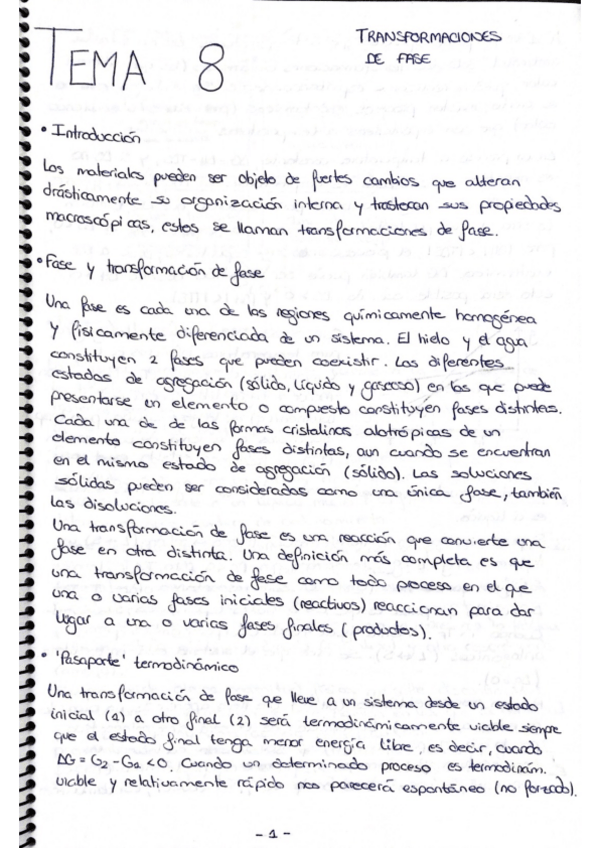 TEMA 8
TRANSFORMACIONES
DE FASE
• Introducción
Los materiales pueden ser objeto de fuertes cambios que alteran
drásticamente su organización interna y trastocan sus propiedades
macroscópicas, estos se llaman transformaciones de fase.
• Fase y transformación de fase
Una fase es cada una de las regiones químicamente homogénea
y físicamente diferenciada de un sistema. El hielo y el agua
constituyen 2 fases que pueden coexistir. Los diferentes
estados de agregación (sólido, líquido y gaseoso) en los que puede
presentarse un elemento o compuesto constituyen fases distintas.
Cada una de de las formas cristalinas alotrópicas de un
elemento constituyen fases distintas, aun cuando se encuentran
en el mismo estado de agregación (sólido). Las soluciones
sólidas pueden ser consideradas como una única fase, también
las disoluciones.
Una transformación de fase es una reacción que convierte una
fase en otra distinta. Una definición más completa es que
una transformación de fase como todo proceso en el que
una o varias fases iniciales (reactivos) reaccionan para dar
lugar a una o varias fases finales (productos).
• 'Pasaporte' termodinámico
Una transformación de fase que lleve a un sistema desde un estado
inicial (1) a otro final (2) será termodinámicamente viable siempre
que el estado final tenga menor energía libre, es decir, cuando
ΔG = G2 - G1 < 0. Cuando un determinado proceso es termodinám.
viable y relativamente rápido nos parecerá espontáneo (no forzado).
- 1 -